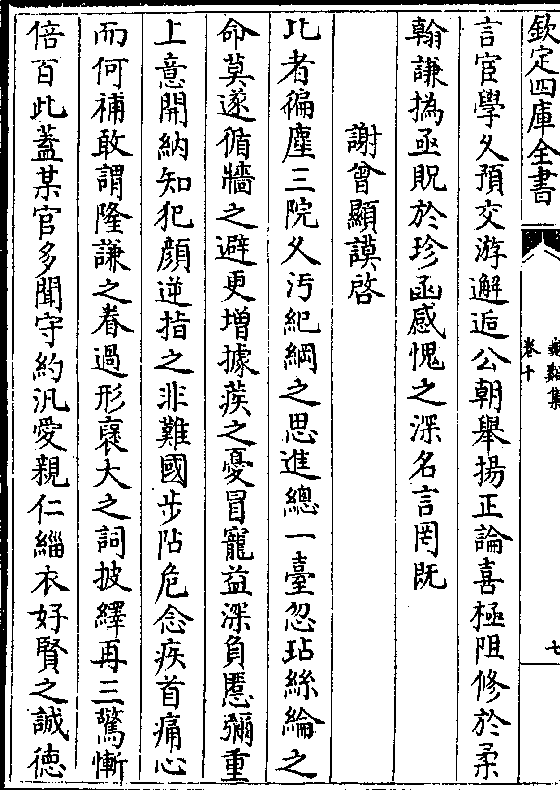 欽定四庫全書
卷十
七
言宦學久預交游邂逅公朝舉揚正論喜極阻修於柔
翰謙撝亟貺於珍函感愧之深名言罔既
謝曾顯謨啓
比者徧塵三院久汚紀綱之思進總一臺忽玷絲綸之
命莫遂循牆之避更增據蒺之憂冒寵益深負慝彌重
上意開納知犯顔逆指之非難國步阽危念疾首痛心
而何補敢謂隆謙之眷過形褒大之詞披繹再三驚慚
倍百此蓋某官多聞守約汎愛親仁緇衣好賢之誠德